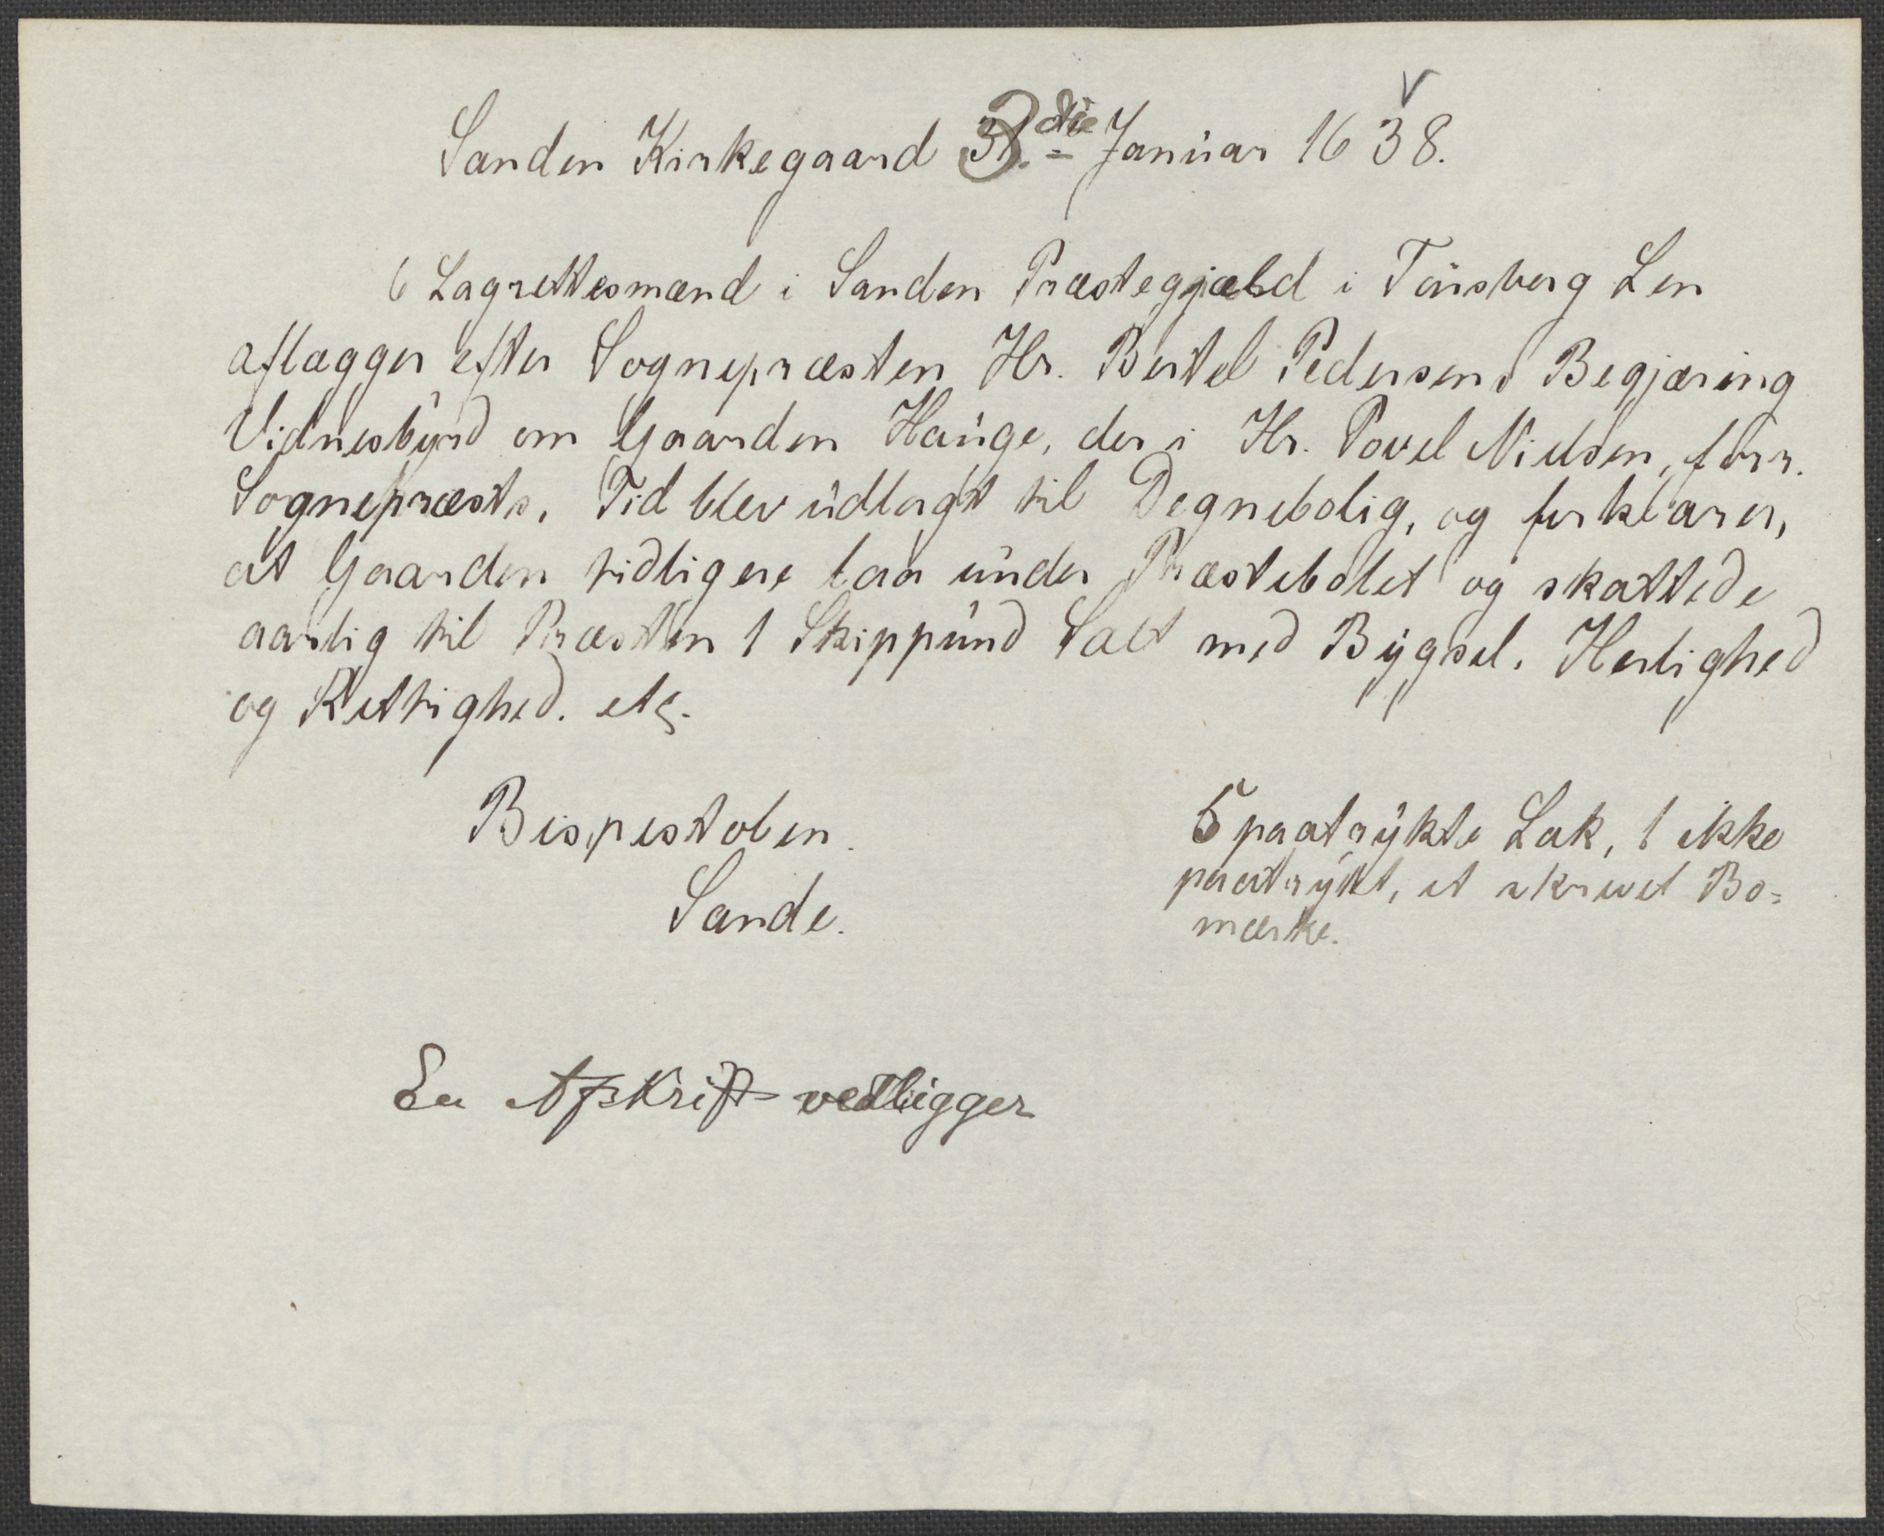 Sanden Kirkegaard 3die Januar 1638.
6 Lagrettesmænd i Sanden Præstegjæld i Tönsberg Len
aflægger efter Sognepræsten Hr. Bertel Pedersens Begjæring
Vidnesbyrd om Gaarden Hauge, der i Hr. Povel Nielsen, forr.
Sognepræsts, Tid blev udlagt til Degnebolig, og forklarer,
at Gaarden tidligere laa under Præstebolet og skattede
aarlig til Præsten 1 Skippund Salt med Bygsel. Herlighed
og Rettighed. etc.
Bispestolen.
Sande.
5 paatrykte Lak, 1 ikke
paatrykt, et skrevet Bo=
mærke.
En Afskrift vedligger